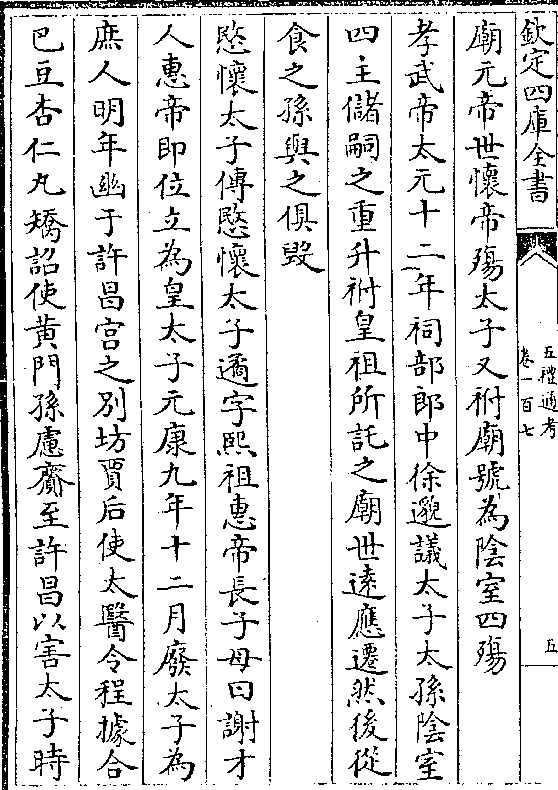 欽定四庫全書
五禮通考
卷一百七
五
廟元帝世懷帝殤太子又祔廟號為陰室四殤
孝武帝太元十二年祠部郎中徐邈議太子太孫陰室
四主儲嗣之重升祔皇祖所託之廟世遠應遷然後從
食之孫與之俱毀
愍懷太子傳愍懷太子遹字熙祖惠帝長子母曰謝才
人惠帝即位立為皇太子元康九年十二月廢太子為
庶人明年幽于許昌宫之別坊賈后使太醫令程據合
巴豆杏仁丸矯詔使黄門孫慮齎至許昌以害太子時